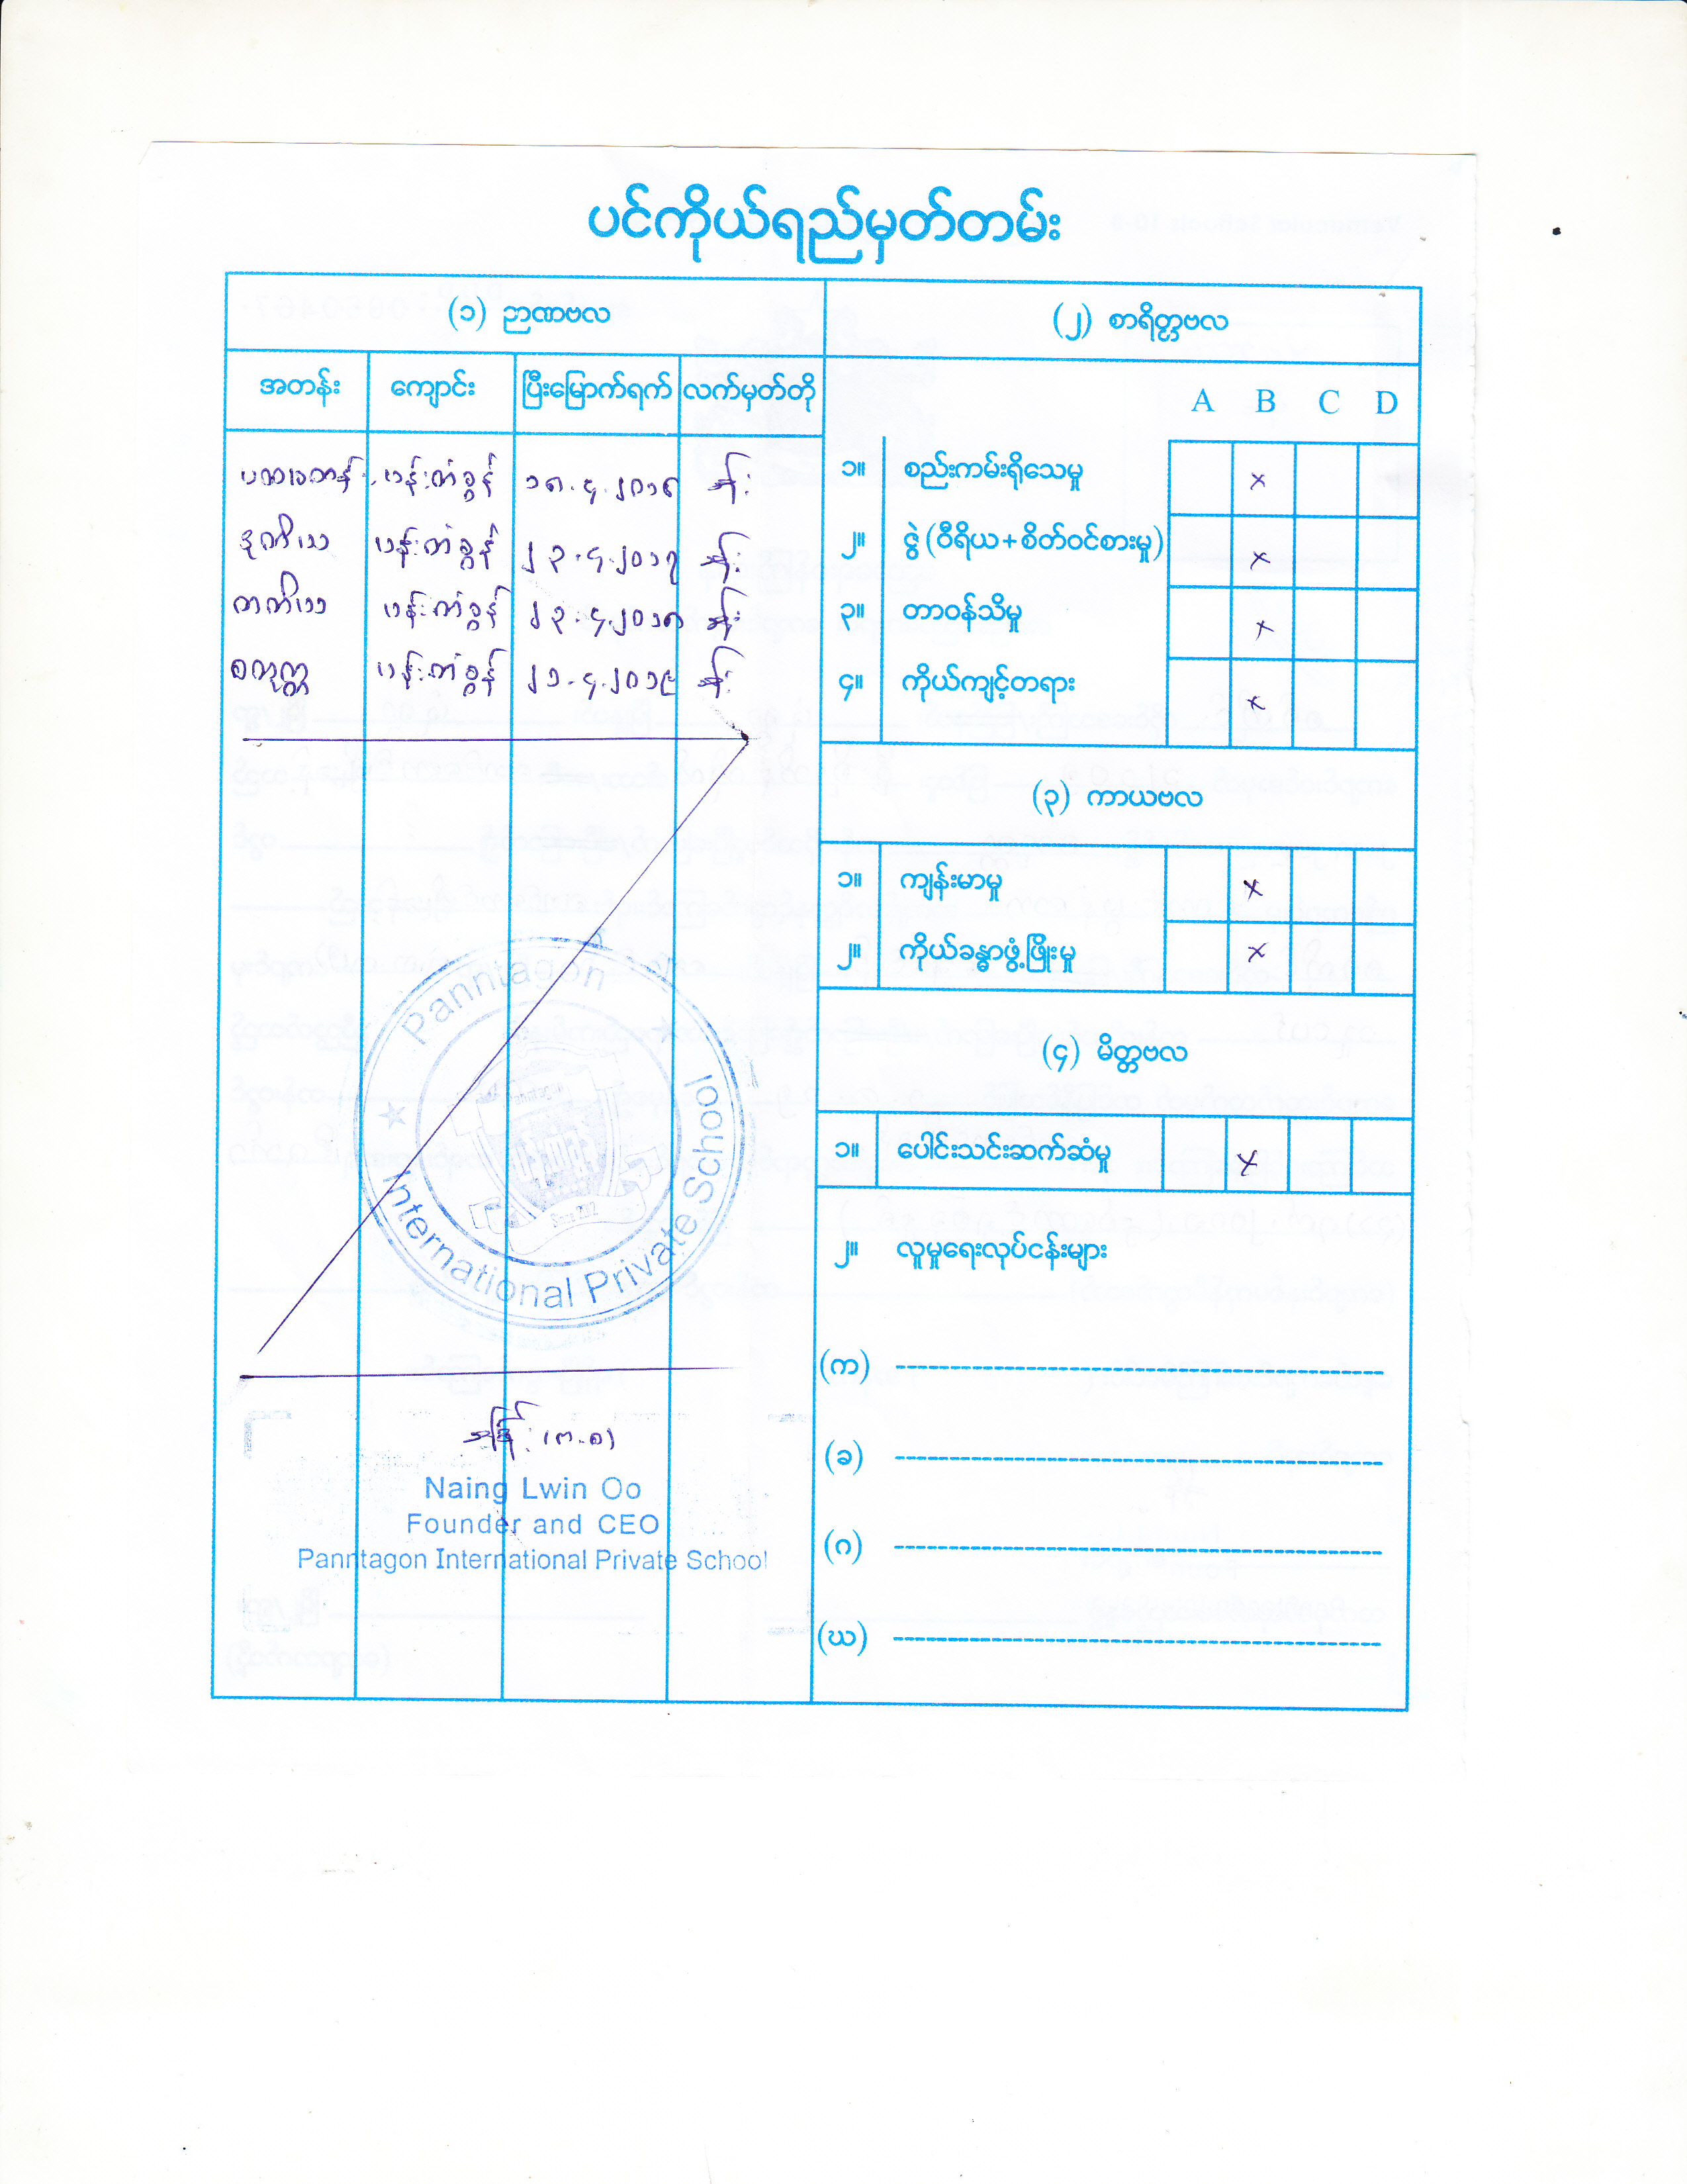 ပင်ကိုယ်ရည်မှတ်တမ်း
(၁) ဉာဏဗလ
အတန်း ကျောင်း ပြီးမြောက်ရက် လက်မှတ်တို
ပထမတန်း ပန်းတံခွန် ၁၈.၄.၂၀၁၆
ဒုတိယ ပန်းတံခွန် ၂၃.၄.၂၀၁၇
တတိယ ပန်းတံခွန် ၂၃.၄.၂၀၁၈
စတုတ္ထ ပန်းတံခွန် ၂၁.၄.၂၀၁၉
Panntagon
International Private School
Since 2012
Naing Lwin Oo
Founder and CEO
Panntagon International Private School
(၂) စာရိတ္တဗလ
A B C D
၁။ စည်းကမ်းရိုသေမှု x
၂။ ဇွဲ (ဝီရိယ + စိတ်ဝင်စားမှု) x
၃။ တာဝန်သိမှု x
၄။ ကိုယ်ကျင့်တရား x
(၃) ကာယဗလ
၁။ ကျန်းမာမှု x
၂။ ကိုယ်ခန္ဓာဖွံ့ဖြိုးမှု x
(၄) မိတ္တဗလ
၁။ ပေါင်းသင်းဆက်ဆံမှု x
၂။ လူမှုရေးလုပ်ငန်းများ
(က)
(ခ)
(ဂ)
(ဃ)